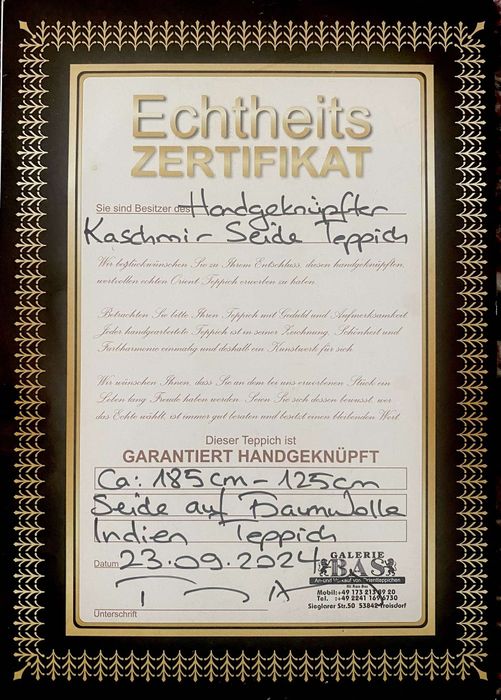 Echtheits
ZERTIFIKAT
Sie sind Besitzer des Handgeknüpfter
Kaschmir - Seide Teppich
Wir beglückwünschen Sie zu Ihrem Entschluss, diesen handgeknüpften,
wertvollen echten Orient Teppich erworben zu haben.
Betrachten Sie bitte Ihren Teppich mit Geduld und Aufmerksamkeit
Jeder handgearbeitete Teppich ist in seiner Zeichnung, Schönheit und
Farbharmonie einmalig und deshalb ein Kunstwerk für sich
Wir wünschen Ihnen, dass Sie an dem bei uns erworbenen Stück ein
Leben lang Freude haben werden. Seien Sie sich dessen bewusst, wer
das Echte wählt, ist immer gut beraten und besitzt einen bleibenden Wert
Dieser Teppich ist
GARANTIERT HANDGEKNÜPFT
Ca: 185cm - 125cm
Seide auf Baumwolle
Indien Teppich
Datum 23.09.2024
GALERIE
BAS
An- und Verkauf von Orientteppichen
Mobil: +49 173 213 89 20
Tel. :+49 2241 1696730
Sieglarer Str.50 53842 Troisdorf
Unterschrift